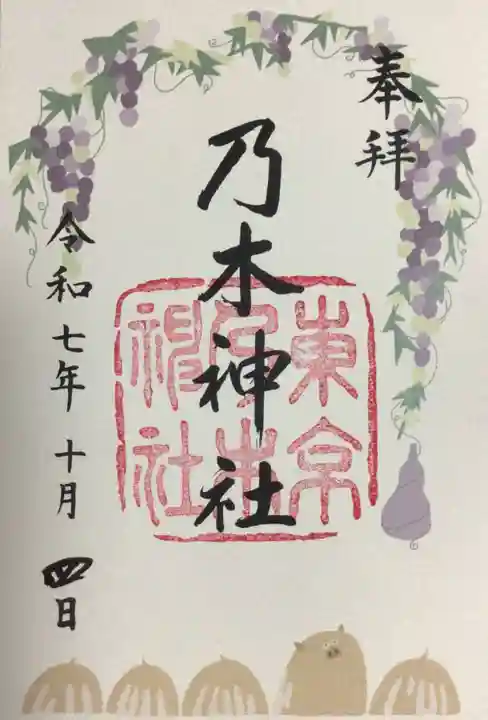 奉拝
乃木神社
東京
乃木
神社
令和七年十月四日